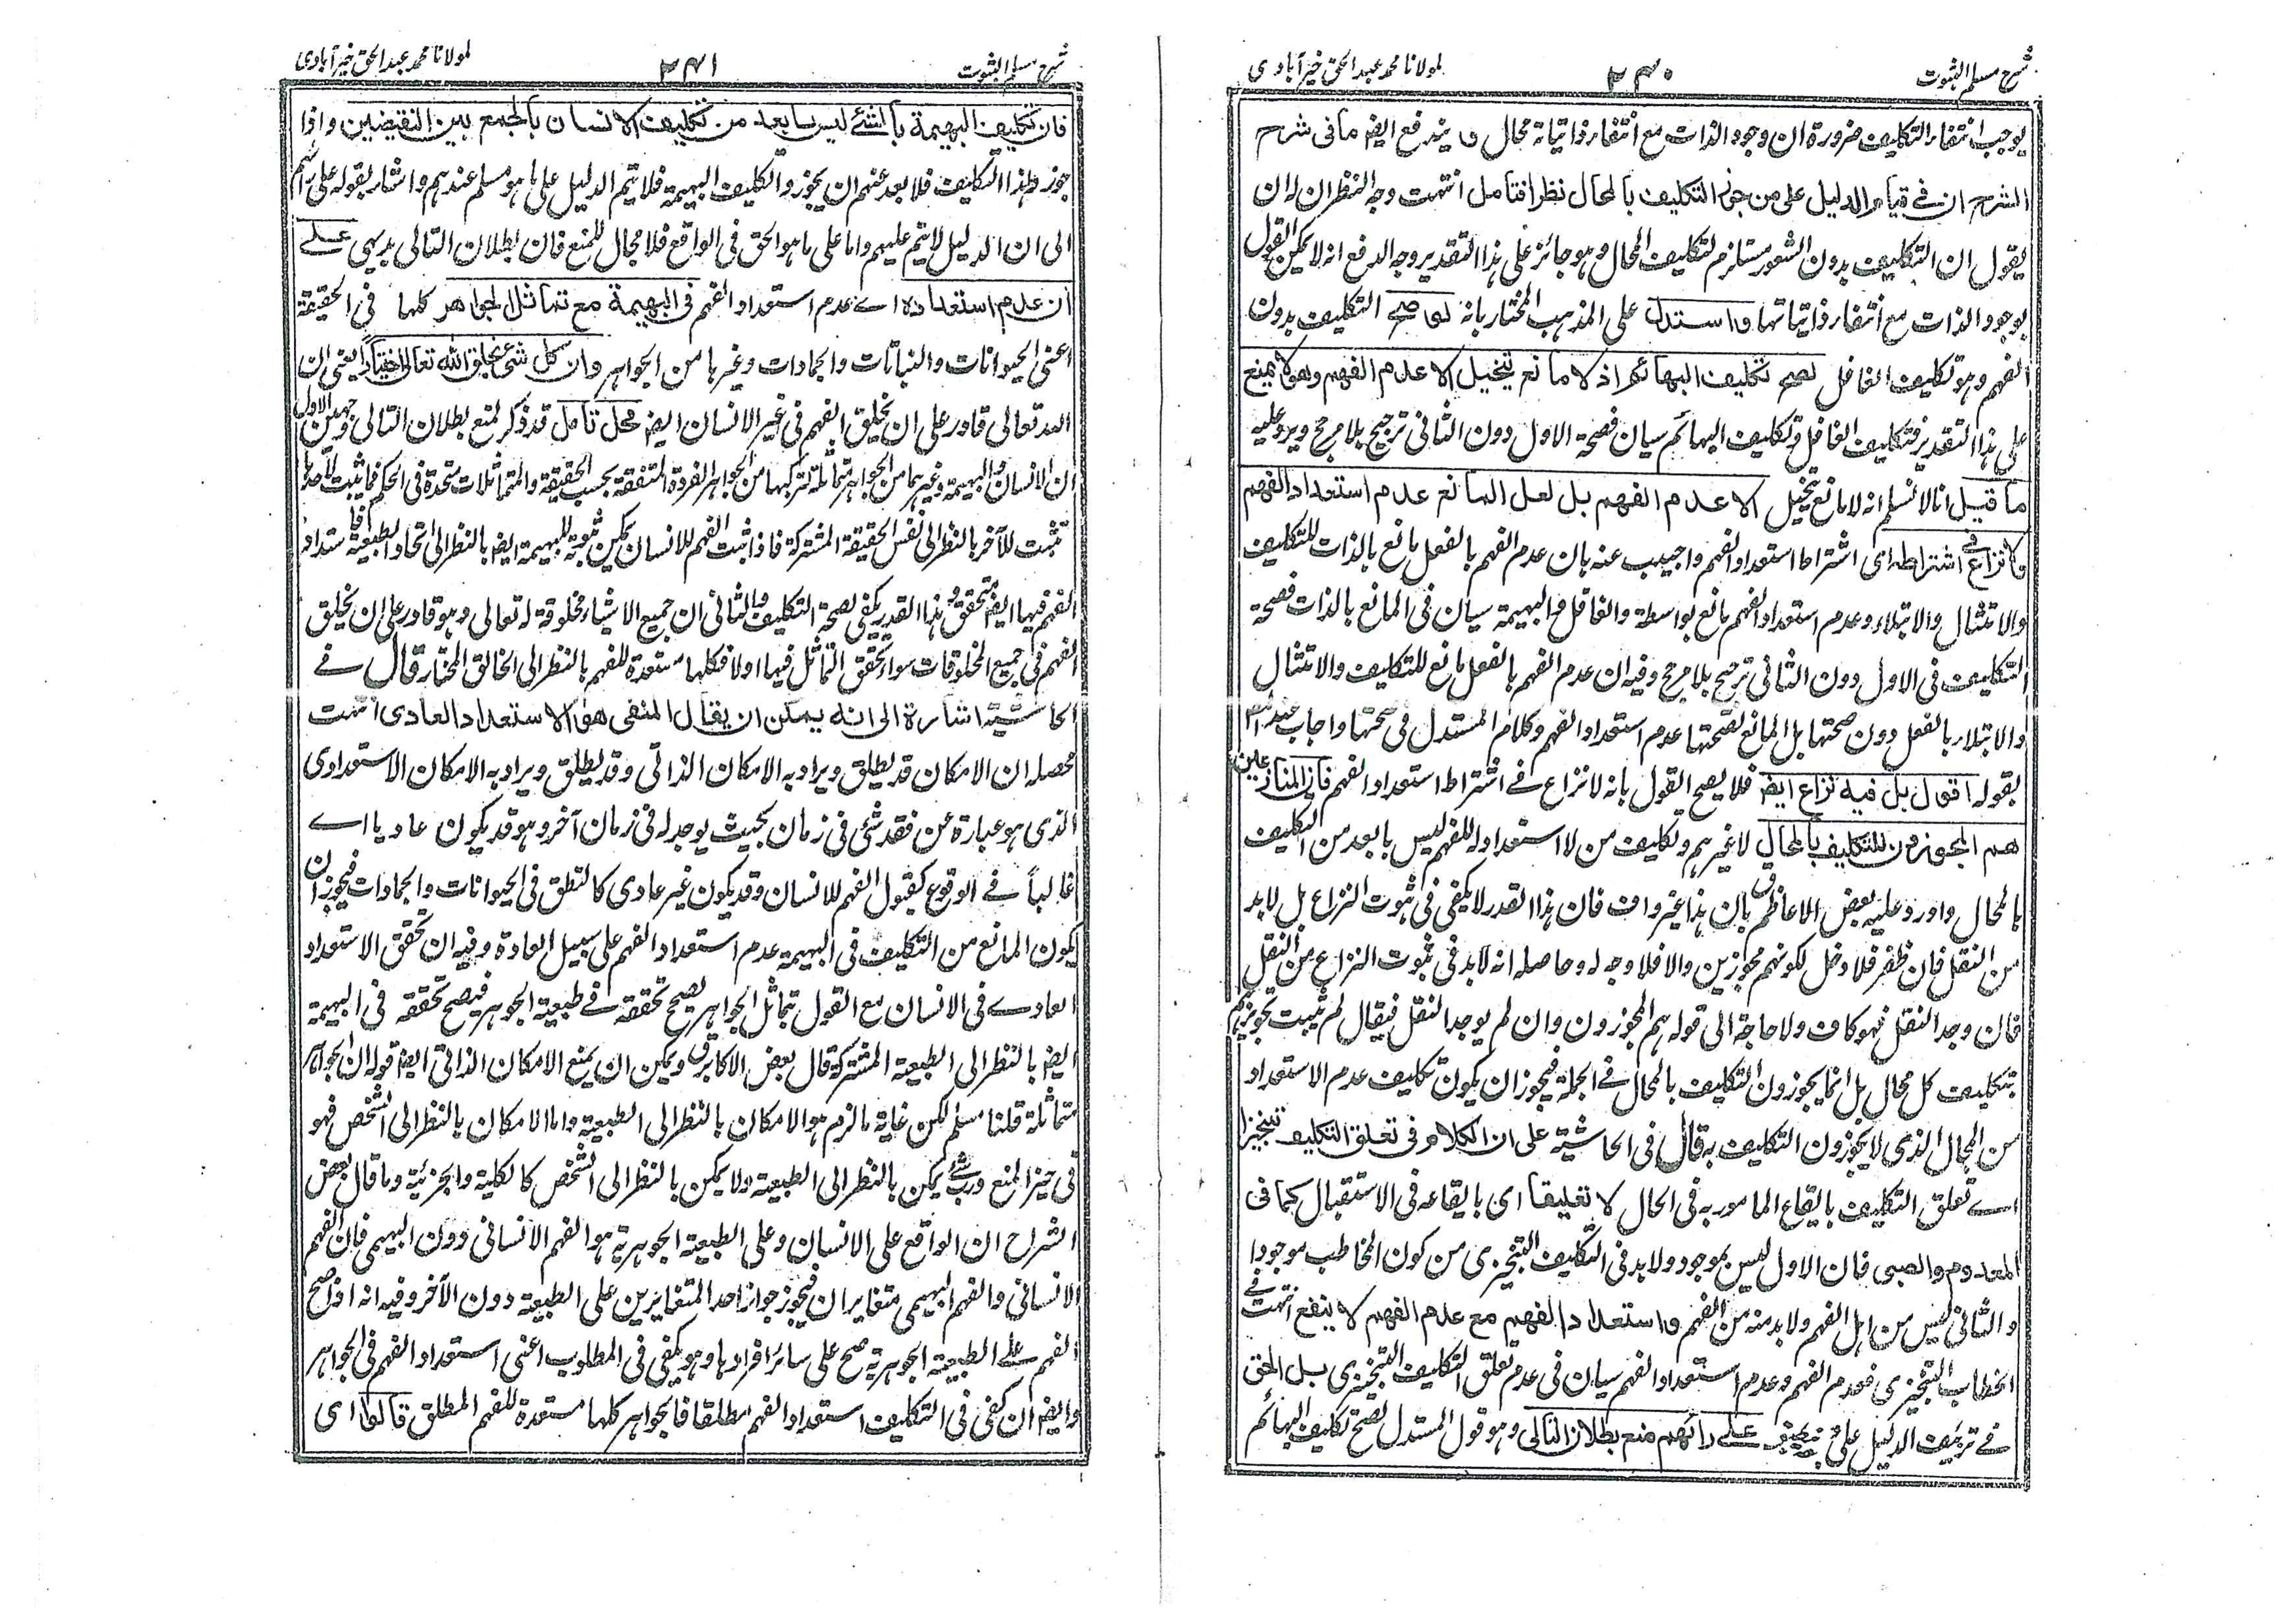 شرح مسلم الثبوت
۲۴۰
لمولانا محمد عبد الحق خیرآبادی
یوجب انتفاء التکلیف ضرورة ان وجود الذات مع انتفاء ذاتیاته محال و یندفع ایضا ما فی شرح
الشرح ان فی قیام الدلیل علی من جوز التکلیف بالمحال نظرا فتامل انتهت وجه النظر ان له ان
یقول ان التکلیف بدون الشعور مستلزم لتکلیف المحال وهو جائز علی هذا التقدیر وجه الدفع انه لا یمکن القول
بوجود الذات مع انتفاء ذاتیاتها واستدل علی المذهب المختار بانه لو صح التکلیف بدون
الفهم وهو تکلیف الغافل لصح تکلیف البهائم اذ لا مانع یتخیل الا عدم الفهم وهو لا یمنع
علی هذا التقدیر فتکلیف الغافل وتکلیف البهائم سیان فصحة الاول دون الثانی ترجیح بلا مرجح ویرد علیه
ما قیل انا لا نسلم انه لا مانع یتخیل الا عدم الفهم بل لعل المانع عدم استعداد الفهم
ولا نزاع فی اشتراطه ای اشتراط استعداد الفهم واجیب عنه بان عدم الفهم بالفعل مانع بالذات للتکلیف
والامتثال والابتلاء وعدم استعداد الفهم مانع بواسطة والغافل والبهیمة سیان فی المانع بالذات فصحة
التکلیف فی الاول دون الثانی ترجیح بلا مرجح وفیه ان عدم الفهم بالفعل مانع للتکلیف والامتثال
والابتلاء بالفعل دون صحتها بل المانع لصحتها عدم استعداد الفهم وکلام المستدل فی صحتها واجاب عنه
بقوله اقول بل فیه نزاع ایضا فلا یصح القول بانه لا نزاع فی اشتراط استعداد الفهم فان المنازعین
هم المجوزون للتکلیف بالمحال لا غیرهم وتکلیف من لا استعداد له للفهم لیس بابعد من التکلیف
بالمحال واورد علیه بعض الاعاظم بان هذا غیر واف فان هذا القدر لا یکفی فی ثبوت النزاع بل لابد
من النقل فان ظفر فلا دخل لکونهم مجوزین والا فلا وجه له وحاصله انه لابد فی ثبوت النزاع من النقل
فان وجد النقل فهو کاف ولا حاجة الی قوله هم المجوزون وان لم یوجد النقل فیقال لم یثبت تجویزهم
بتکلیف کل محال بل انما یجوزون التکلیف بالمحال فی الجملة فیجوز ان یکون تکلیف عدم الاستعداد
من المحال الذی لا یجوزون التکلیف به قال فی الحاشیة علی ان الکلام فی تعلق التکلیف تنجیزا
ای تعلق التکلیف بایقاع المامور به فی الحال لا تعلیقا ای بایقاعه فی الاستقبال کما فی
المعدوم والصبی فان الاول لیس بموجود ولابد فی التکلیف التنجیزی من کون المخاطب موجودا
والثانی لیس من اهل الفهم ولابد منه من الفهم واستعداد الفهم مع عدم الفهم لا ینفع انتهت فی
الخطاب التنجیزی فعدم الفهم وعدم استعداد الفهم سیان فی عدم تعلق التکلیف التنجیزی بل الحق
فی تزییف الدلیل علی رائهم منع بطلان التالی وهو قول المستدل لصح تکلیف البهائم
شرح مسلم الثبوت
۲۴۱
لمولانا محمد عبد الحق خیرآبادی
فان تکلیف البهیمة بالشئ لیس بابعد من تکلیف الانسان بالجمع بین النقیضین واذا
جوز هذا التکلیف فلا بعد عنهم ان یجوزوا تکلیف البهیمة فلا یتم الدلیل علی ما هو مسلم عندهم واشار بقوله علی رائهم
الی ان الدلیل لا یتم علیهم واما علی ما هو الحق فی الواقع فلا مجال للمنع فان بطلان التالی بدیهی علی
ان عدم استعداده ای عدم استعداد الفهم فی البهیمة مع تماثل الجواهر کلها فی الحقیقة
اعنی الحیوانات والنباتات والجمادات وغیرها من الجواهر وان کل شئ بخلق الله تعالی اختیارا یعنی ان
الله تعالی قادر علی ان یخلق الفهم فی غیر الانسان ایضا محل تامل قد ذکر لمنع بطلان التالی وجهین الاول
ان الانسان والبهیمة وغیرهما من الجواهر متماثلة لترکبها من الجواهر الفردة المتفقة بحسب الحقیقة والمتماثلات متحدة فی الحکم فما یثبت لاحدها
یثبت للآخر بالنظر الی نفس الحقیقة المشترکة فاذا ثبت الفهم للانسان یمکن ثبوته للبهیمة ایضا بالنظر الی اتحاد الطبیعة فاستعداد
الفهم فیها ایضا متحقق وهذا القدر یکفی لصحة التکلیف والثانی ان جمیع الاشیاء مخلوقة له تعالی وهو قادر علی ان یخلق
الفهم فی جمیع المخلوقات سواء تحقق التماثل فیها اولا فکلها مستعدة للفهم بالنظر الی الخالق المختار قال فی
الحاشیة اشارة الی انه یمکن ان یقال المنفی هو الاستعداد العادی انتهت
محصله ان الامکان قد یطلق ویراد به الامکان الذاتی وقد یطلق ویراد به الامکان الاستعدادی
الذی هو عبارة عن فقد شئ فی زمان بحیث یوجد له فی زمان آخر وهو قد یکون عادیا ای
غالبا فی الوقوع کقبول الفهم للانسان وقد یکون غیر عادی کالنطق فی الحیوانات والجمادات فیجوز ان
یکون المانع من التکلیف فی البهیمة عدم استعداد الفهم علی سبیل العادة وفیه ان تحقق الاستعداد
العادی فی الانسان مع القول بتماثل الجواهر یصح تحققه فی طبیعة الجوهر فیصح تحققه فی البهیمة
ایضا بالنظر الی الطبیعة المشترکة قال بعض الاکابر ویمکن ان یمنع الامکان الذاتی ایضا قوله ان الجواهر
متماثلة قلنا مسلم لکن غایة ما لزم هو الامکان بالنظر الی الطبیعة واما الامکان بالنظر الی الشخص فهو
فی حیز المنع ورب شئ یمکن بالنظر الی الطبیعة ولا یمکن بالنظر الی الشخص کالکلیة والجزئیة وما قال بعض
الشراح ان الواقع علی الانسان وعلی الطبیعة الجوهریة هو الفهم الانسانی دون البهیمی فان الفهم
الانسانی والفهم البهیمی متغایران فیجوز جواز احد المتغایرین علی الطبیعة دون الآخر وفیه انه اذا صح
الفهم علی الطبیعة الجوهریة صح علی سائر افرادها وهو یکفی فی المطلوب اعنی استعداد الفهم فی الجواهر
وایضا ان کفی فی التکلیف استعداد الفهم مطلقا فالجواهر کلها مستعدة للفهم المطلق قالوا ای